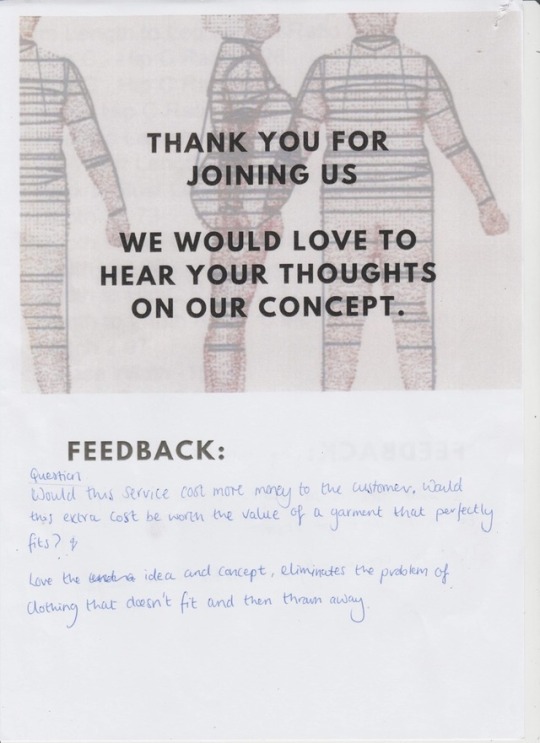 THANK YOU FOR
JOINING US
WE WOULD LOVE TO
HEAR YOUR THOUGHTS
ON OUR CONCEPT.
FEEDBACK:
Question
Would this service cost more money to the customer, would
this extra cost be worth the value of a garment that perfectly
fits?
Love the idea and concept, eliminates the problem of
clothing that doesn't fit and then thrown away.